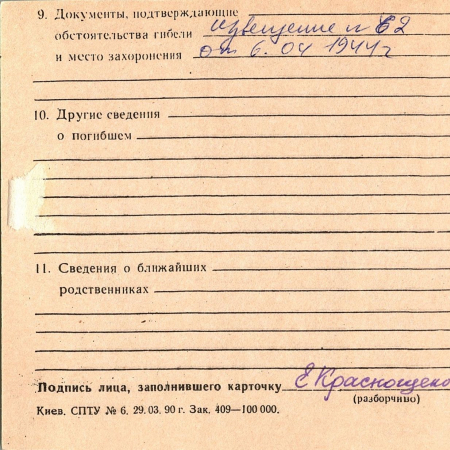 9. Документы, подтверждающие
обстоятельства гибели извещение № 62
и место захоронения от 6.04 1944 г
10. Другие сведения
о погибшем
11. Сведения о ближайших
родственниках
Подпись лица, заполнившего карточку Е Краснощеко
(разборчиво)
Киев. СПТУ № 6. 29. 03. 90 г. Зак. 409—100 000.